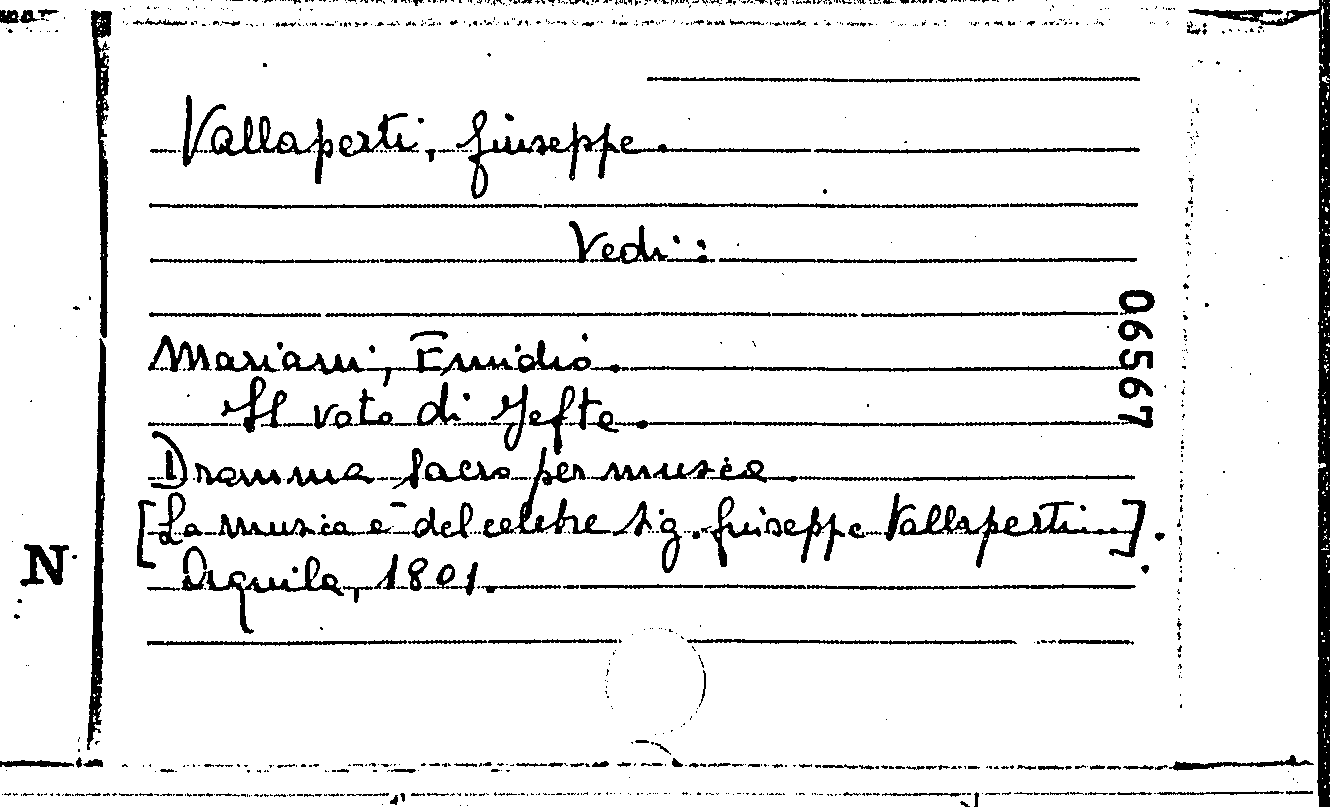 Vallaperti, Giuseppe.
Vedi:
Mariani, Emidio.
Il voto di Jefte.
Dramma sacro per musica.
[La musica è del celebre sig. Giuseppe Vallaperti...].
Aquila, 1801.
06567
N